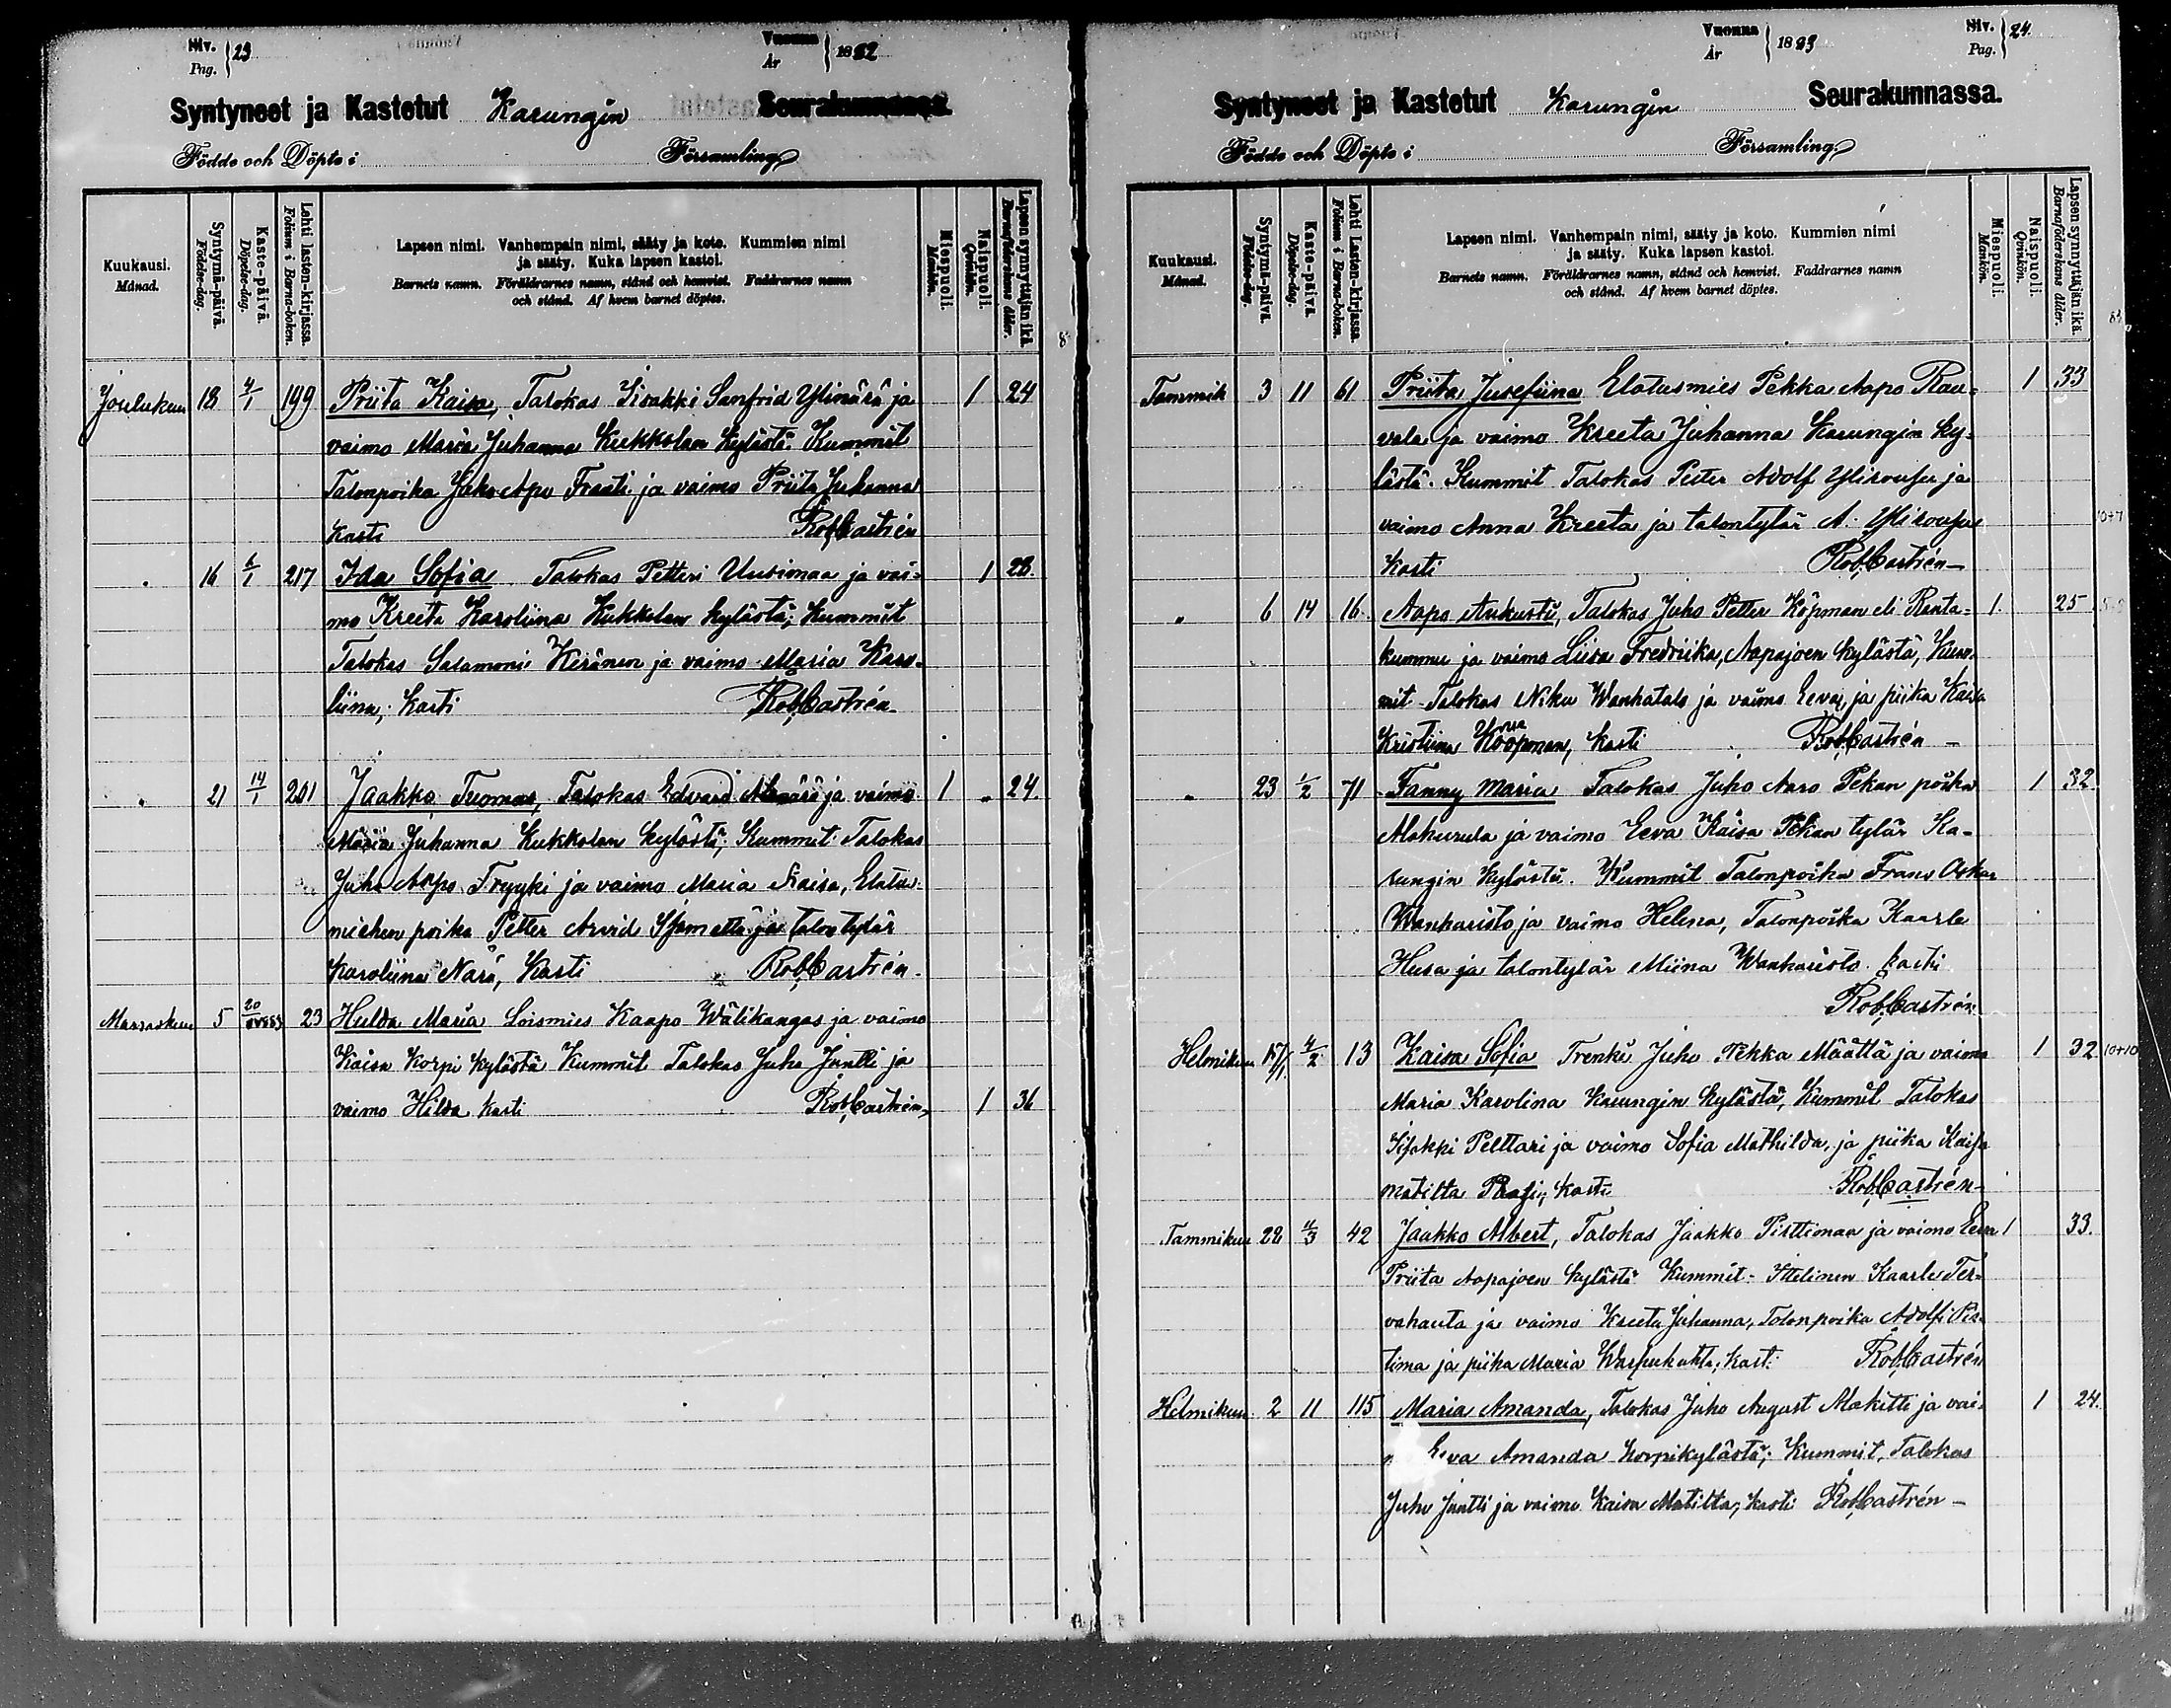 Siv. Pag. 23
Vuonna År 1882
Syntyneet ja Kastetut Karungin Seurakunnassa.
Födde och Döpte i Församling
Kuukausi. Månad.
Syntymä-päivä. Födelse-dag.
Kaste-päivä. Döpelse-dag.
Lehti lasten-kirjassa. Folium i Barna-boken.
Lapsen nimi. Vanhempain nimi, sääty ja koto. Kummien nimi
ja sääty. Kuka lapsen kastoi.
Barnets namn. Föräldrarnes namn, stånd och hemvist. Faddrarnes namn
och stånd. Af hvem barnet döptes.
Miespuoli. Mankön.
Naispuoli. Qvinkön.
Lapsen synnyttäjän ikä. Barnaföderskans ålder.
Joulukuu 18 4/1 199 Priita Kaisa, Talokas Iisakki Sanfrid Ylinärä ja 1 24
vaimo Maria Juhanna Kukkolan kylästä. Kummit
Talonpoika Juho Apo Fraati ja vaimo Priita Juhanna
kasti RobCastrén
" 16 6/1 217 Ida Sofia Talokas Petteri Uusimaa ja vai= 1 28.
mo Kreeta Karoliina Kukkolan kylästä; Kummit
Talokas Salamoni Keränen ja vaimo Maria Karo-
liina, Kasti RobCastrén
" 21 14/1 201 Jaakko Tuomas, Talokas Edvard Alanärä ja vaimo 1 " 24.
Maria Juhanna Kukkolan kylästä; Kummit Talokas
Juho Aapo Fryyki ja vaimo Maria Kaisa, Elatus-
miehen poika Petter Arvid ja talontytär
Karoliina Närä, Kasti RobCastrén.
Marraskuu 5 20/ 23 Hulda Maria Loismies Kaapo Wälikangas ja vaimo
Kaisa Korpi kylästä Kummit Talokas Juho Juntti ja
vaimo Hilda kasti RobCastrén 1 36
Vuonna År 1883
Siv. Pag. 24.
Syntyneet ja Kastetut Karungin Seurakunnassa.
Födde och Döpte i Församling.
Kuukausi. Månad.
Syntymä-päivä. Födelse-dag.
Kaste-päivä. Döpelse-dag.
Lehti Lasten-kirjassa. Folium i Barna-boken.
Lapsen nimi. Vanhempain nimi, sääty ja koto. Kummien nimi
ja sääty. Kuka lapsen kastoi.
Barnets namn. Föräldrarnes namn, stånd och hemvist. Faddrarnes namn
och stånd. Af hvem barnet döptes.
Miespuoli. Mankön.
Naispuoli. Qvinkön.
Lapsen synnyttäjän ikä. Barnaföderskans ålder.
Tammik 3 11 61 Priita Jusefiina Elatusmies Pekka Aapo Rau= 1 33
vala ja vaimo Kreeta Juhanna Karungin ky=
lästä. Kummit Talokas Peter Adolf Ylirousu ja
vaimo Anna Kreeta ja talontytär A. Ylirousu
kasti RobCastrén
" 6 14 16. Aapo Aukusti, Talokas Juho Petter Köpman eli Ranta= 1. 25
kummu ja vaimo Liisa Fredriika, Aapajoen kylästä, Kum-
mit Talokas Niku Wanhatalo ja vaimo Eeva, ja piika Kaisa
Kristiina Koopman, kasti RobCastrén
" 23 1/2 71 Fanny Maria Talokas Juho Aaro Pekan poika 1 32
Alahurula ja vaimo Eeva Kaisa Pekan tytär Ka-
rungin kylästä. Kummit Talonpoika Frans Oskar
Wanharisto ja vaimo Helena, Talonpoika Kaarle
Husa ja talontytär Miina Wanharisto. kasti
RobCastrén.
Helmikuu 17/1. 4/2 13 Kaisa Sofia Trenki Juho Pekka Määttä ja vaimo 1 32 10+10
Maria Karolina Karungin kylästä, Kummit Talokas
Iisakki Pelttari ja vaimo Sofia Mathilda, ja piika Kaisa
Matilta kasti RobCastrén
Tammikuu 22 4/3 42 Jaakko Albert, Talokas Jaakko Pirttimaa ja vaimo Eeva 1 33.
Priita Aapajoen kylästä Kummit. Itellinen Kaarle Ter-
vahauta ja vaimo Kreeta Juhanna, Talonpoika Adolf
ja piika Maria kast. RobCastrén
Helmikuu 2 11 115 Maria Amanda, Talokas Juho August Alakitti ja vai- 1 24.
Eeva Amanda Korpikylästä; Kummit, Talokas
Juho Juntti ja vaimo Kaisa Matilta, kasti RobCastrén